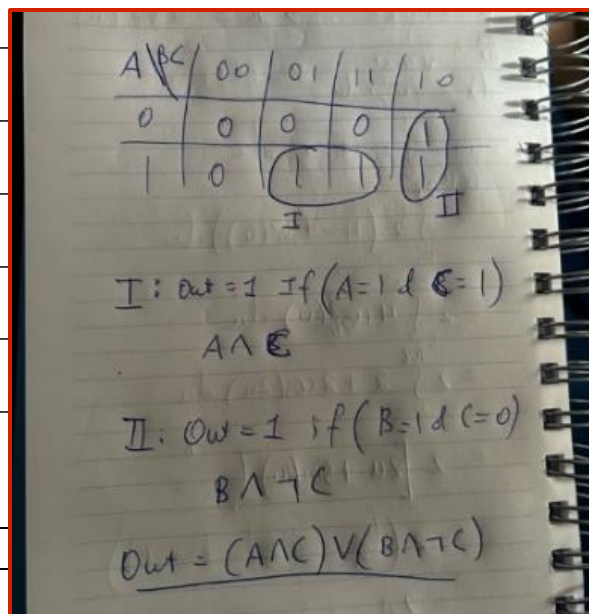 A\BC 00 01 11 10
0 0 0 0 1
1 0 1 1 1
I II
I: Out = 1 If (A=1 & C=1)
A ∧ C
II: Out = 1 if (B=1 & C=0)
B ∧ ¬ C
Out = (A∧C) V (B∧¬C)